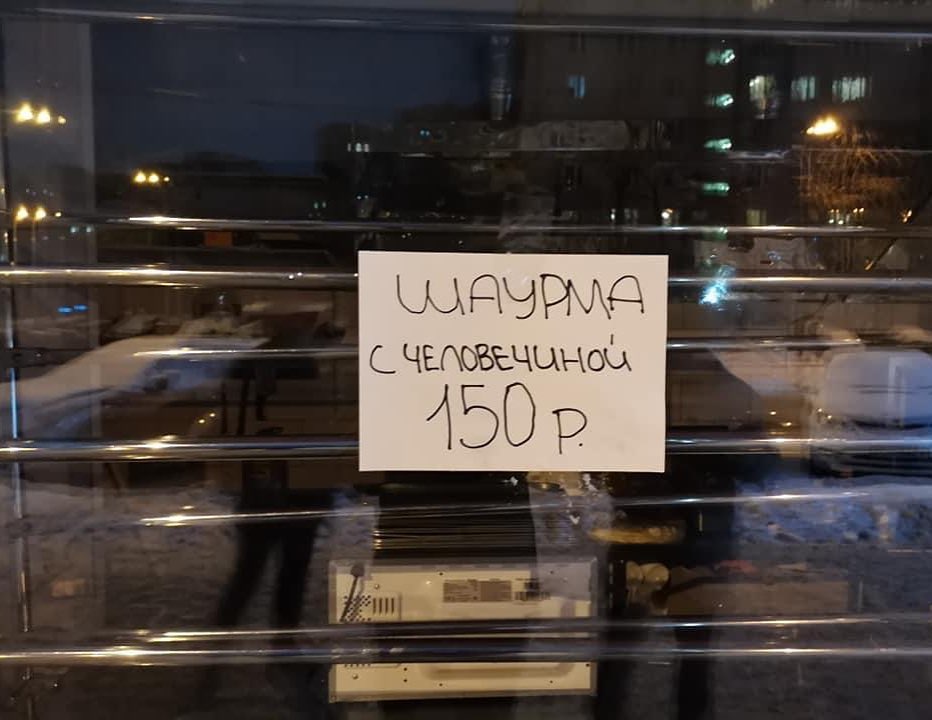 ШАУРМА
С ЧЕЛОВЕЧИНОЙ
150 Р.